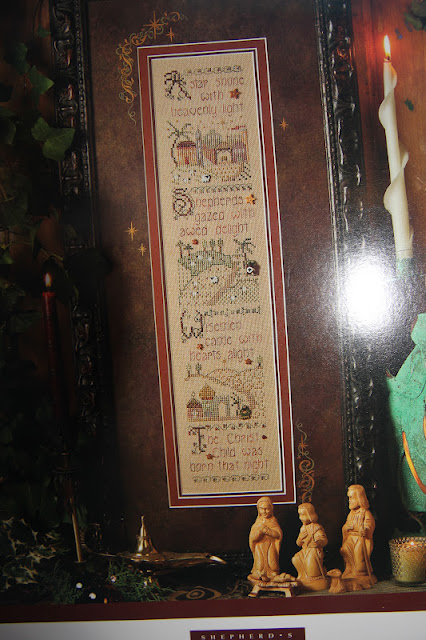 A star shone
with
heavenly light
Shepherds
gazed with
awed delight
Wisemen
came with
hearts alight
The Christ
Child was
born that night
SHEPHERD'S